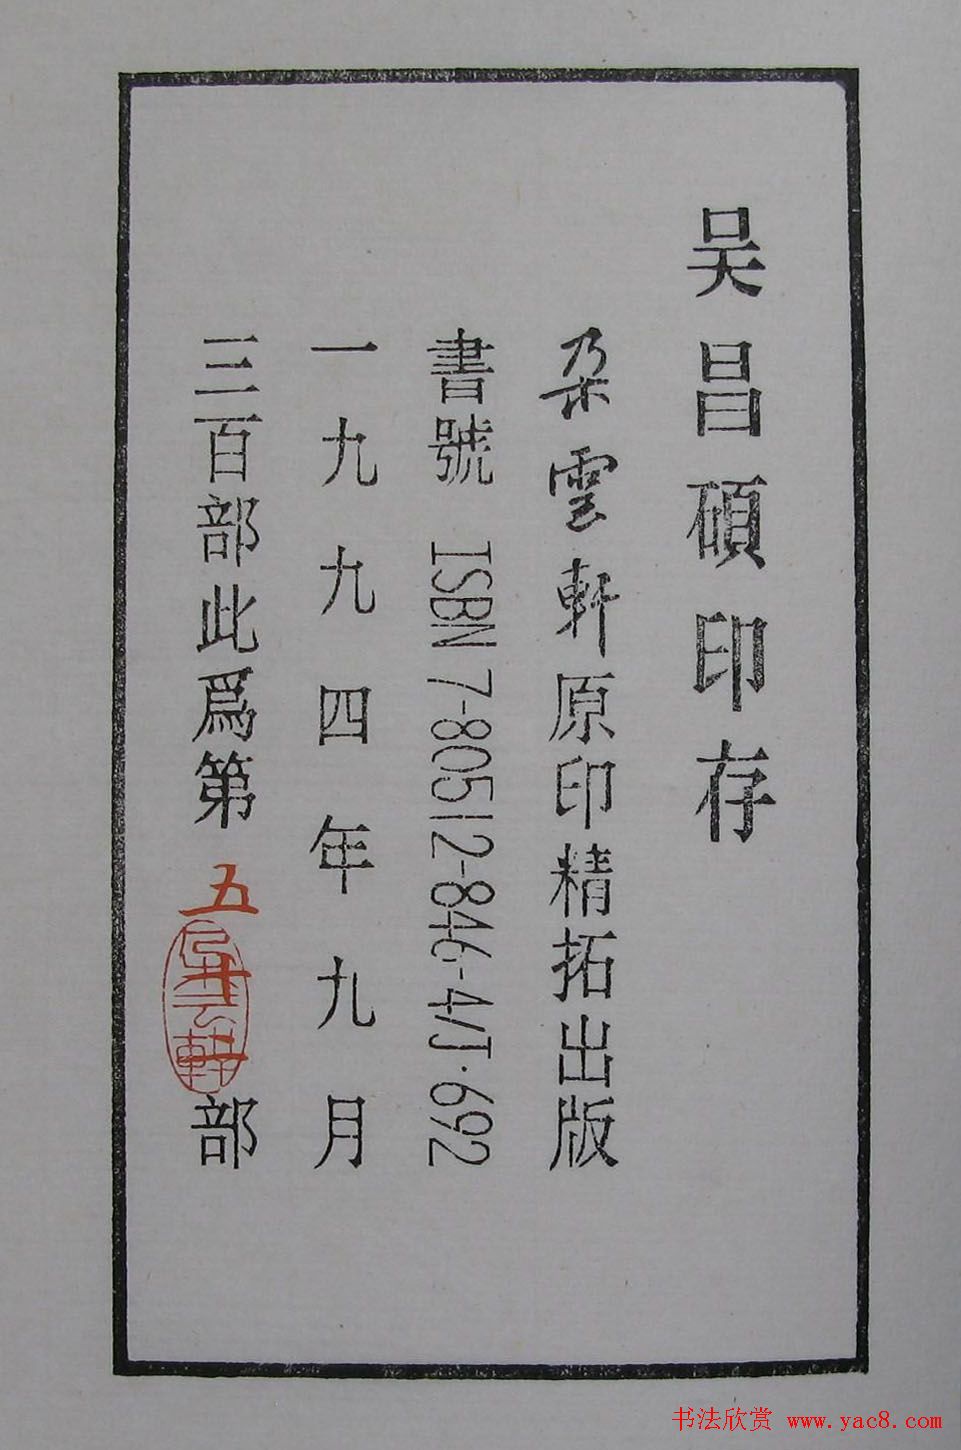 吴昌碩印存
朵雲軒原印精拓出版
書號 ISBN 7-80512-846-4/J·692
一九九四年九月
三百部此爲第五部
书法欣赏 www.yac8.com